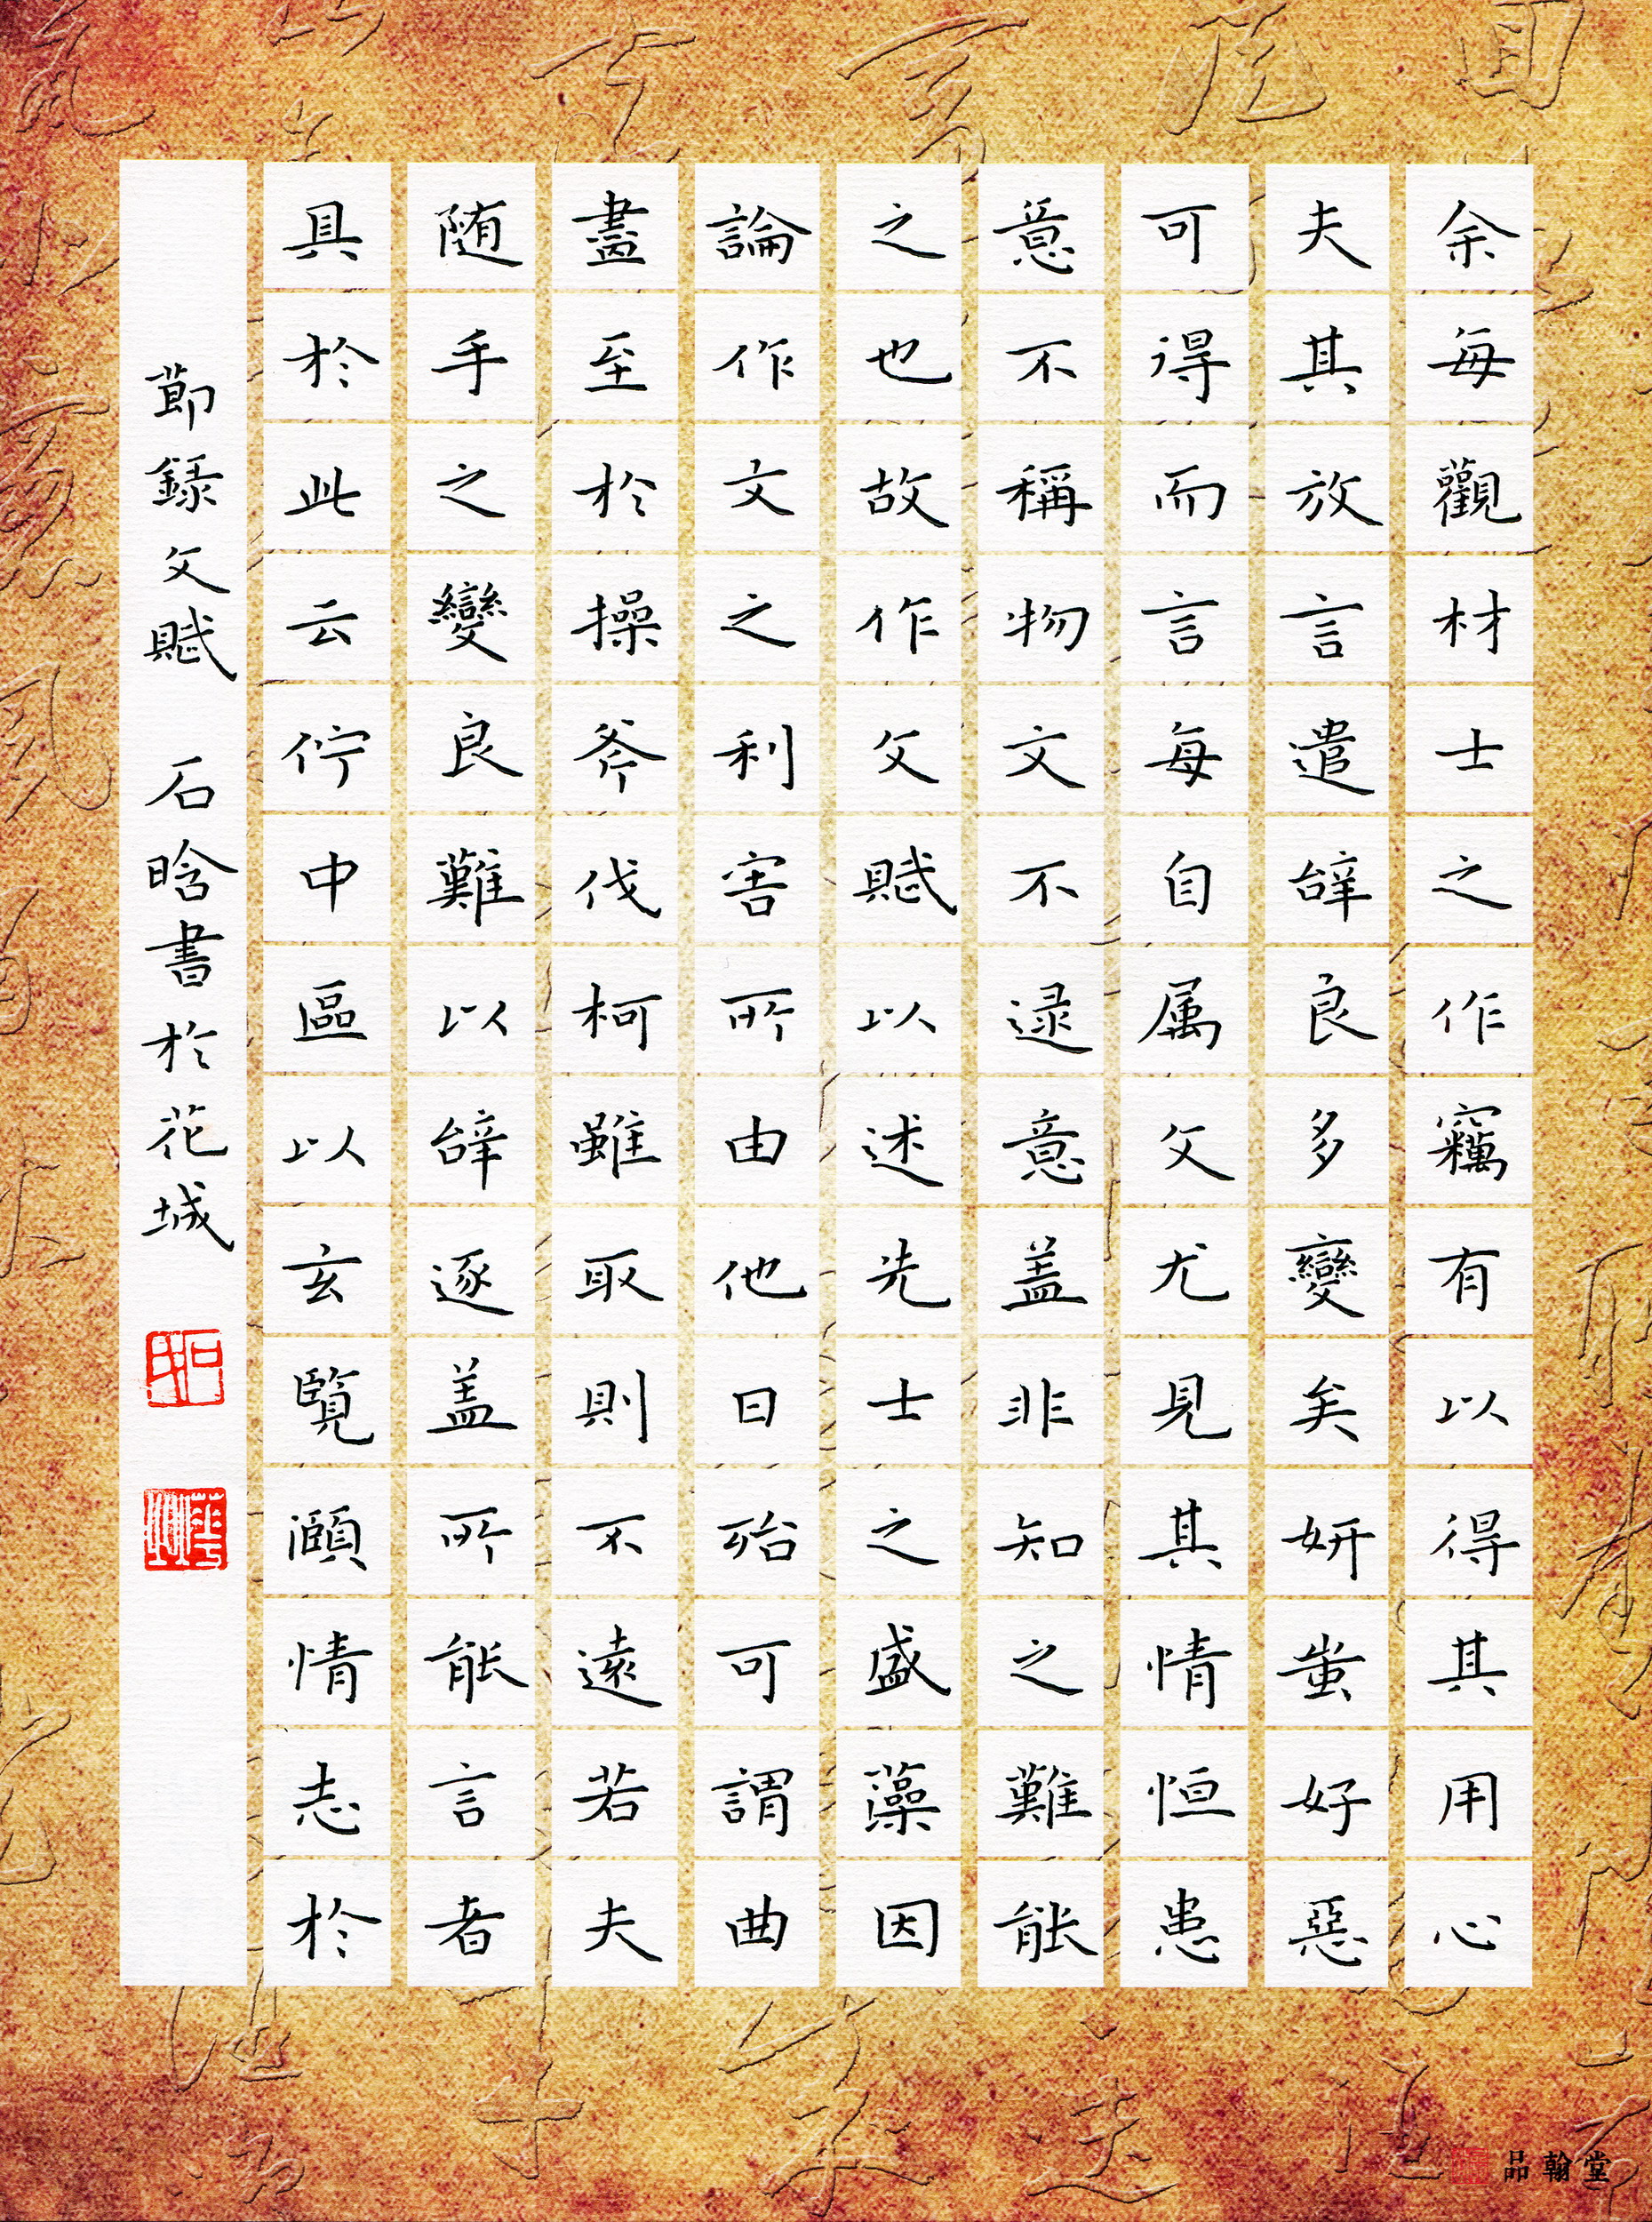 余每觀材士之作竊有以得其用心
夫其放言遣辝良多變矣妍蚩好惡
可得而言每自属文尤見其情恒患
意不稱物文不逮意盖非知之難能
之也故作文賦以述先士之盛藻因
論作文之利害所由他日殆可謂曲
盡至於操斧伐柯雖取則不遠若夫
随手之變良難以辝逐盖所能言者
具於此云佇中區以玄覽頤情志於
節録文賦 石晗書於花城
品翰堂